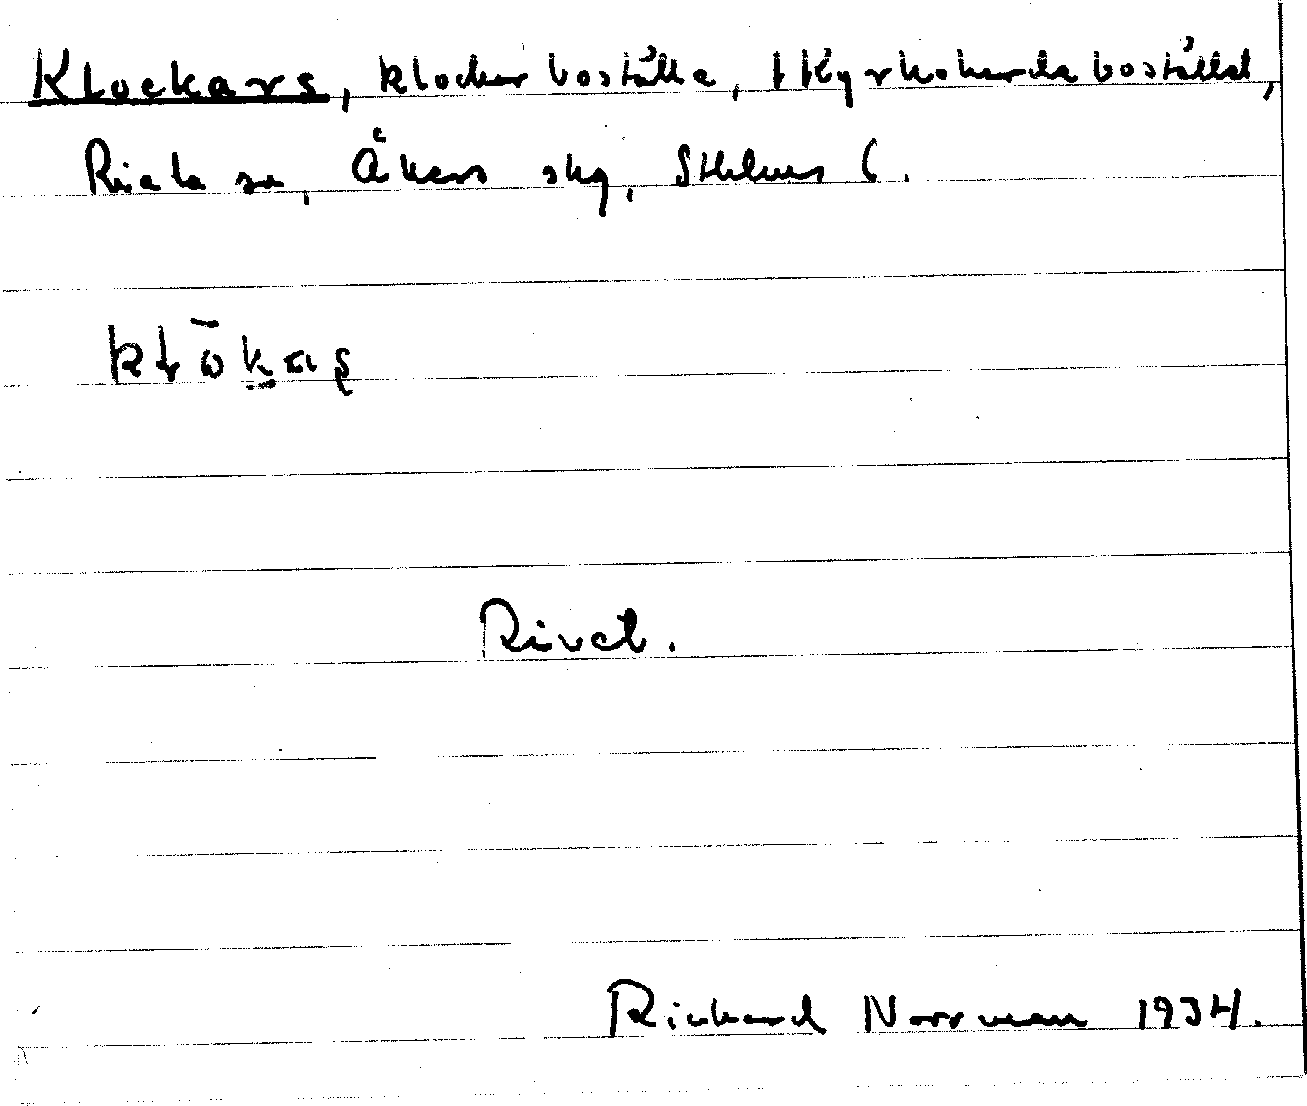 Klockars, klockarboställe, t Kyrkoherdeboställd,
Riala sn, Åkers skg, Sthlms l.
Rivet.
Rickard Norrman 1934.